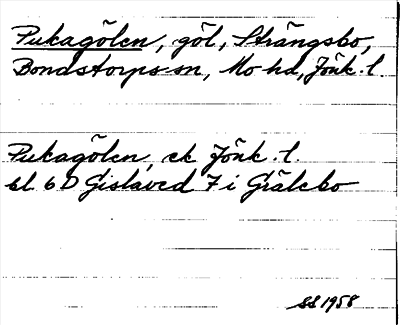 Pukagölen, göl, Strängsbo,
Bondstorps sn, Mo hd, Jönk. l
Pukagölen, ek Jönk. l.
bl 6D Gislaved 7 i Grälebo
SS 1958